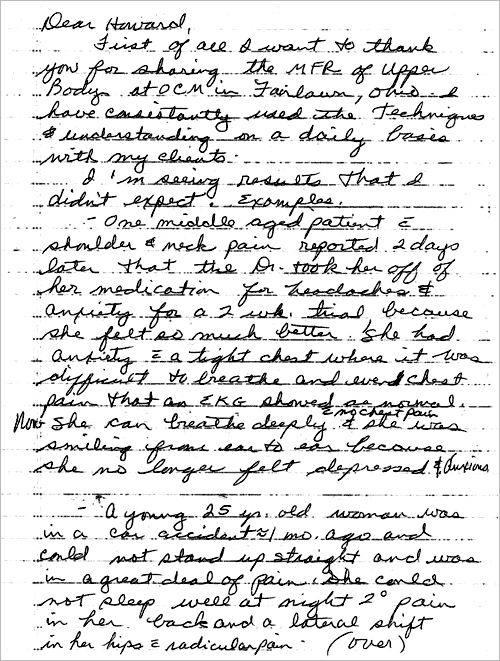 Dear Howard,
First of all I want to thank
you for sharing the MFR of Upper
Body at OCM in Fairlawn, Ohio. I
have consistantly used the Techniques
& understanding on a daily basis
with my clients.
I'm seeing results that I
didn't expect. Examples.
- One middle aged patient c̄
shoulder & neck pain reported 2 days
later that the Dr. took her off of
her medication for headaches &
anxiety for a 2 wk. trial, because
she felt so much better. She had
anxiety c̄ a tight chest where it was
difficult to breathe and even chest
pain that an EKG showed as normal.
Now she can breathe deeply c̄ no chest pain & she was
smiling from ear to ear because
she no longer felt depressed & anxious
- A young 25 yr. old woman was
in a car accident ≈ 1 mo. ago and
could not stand up straight and was
in a great deal of pain. She could
not sleep well at night 2° pain
in her back and a lateral shift
in her hips c̄ radicular pain. (over)